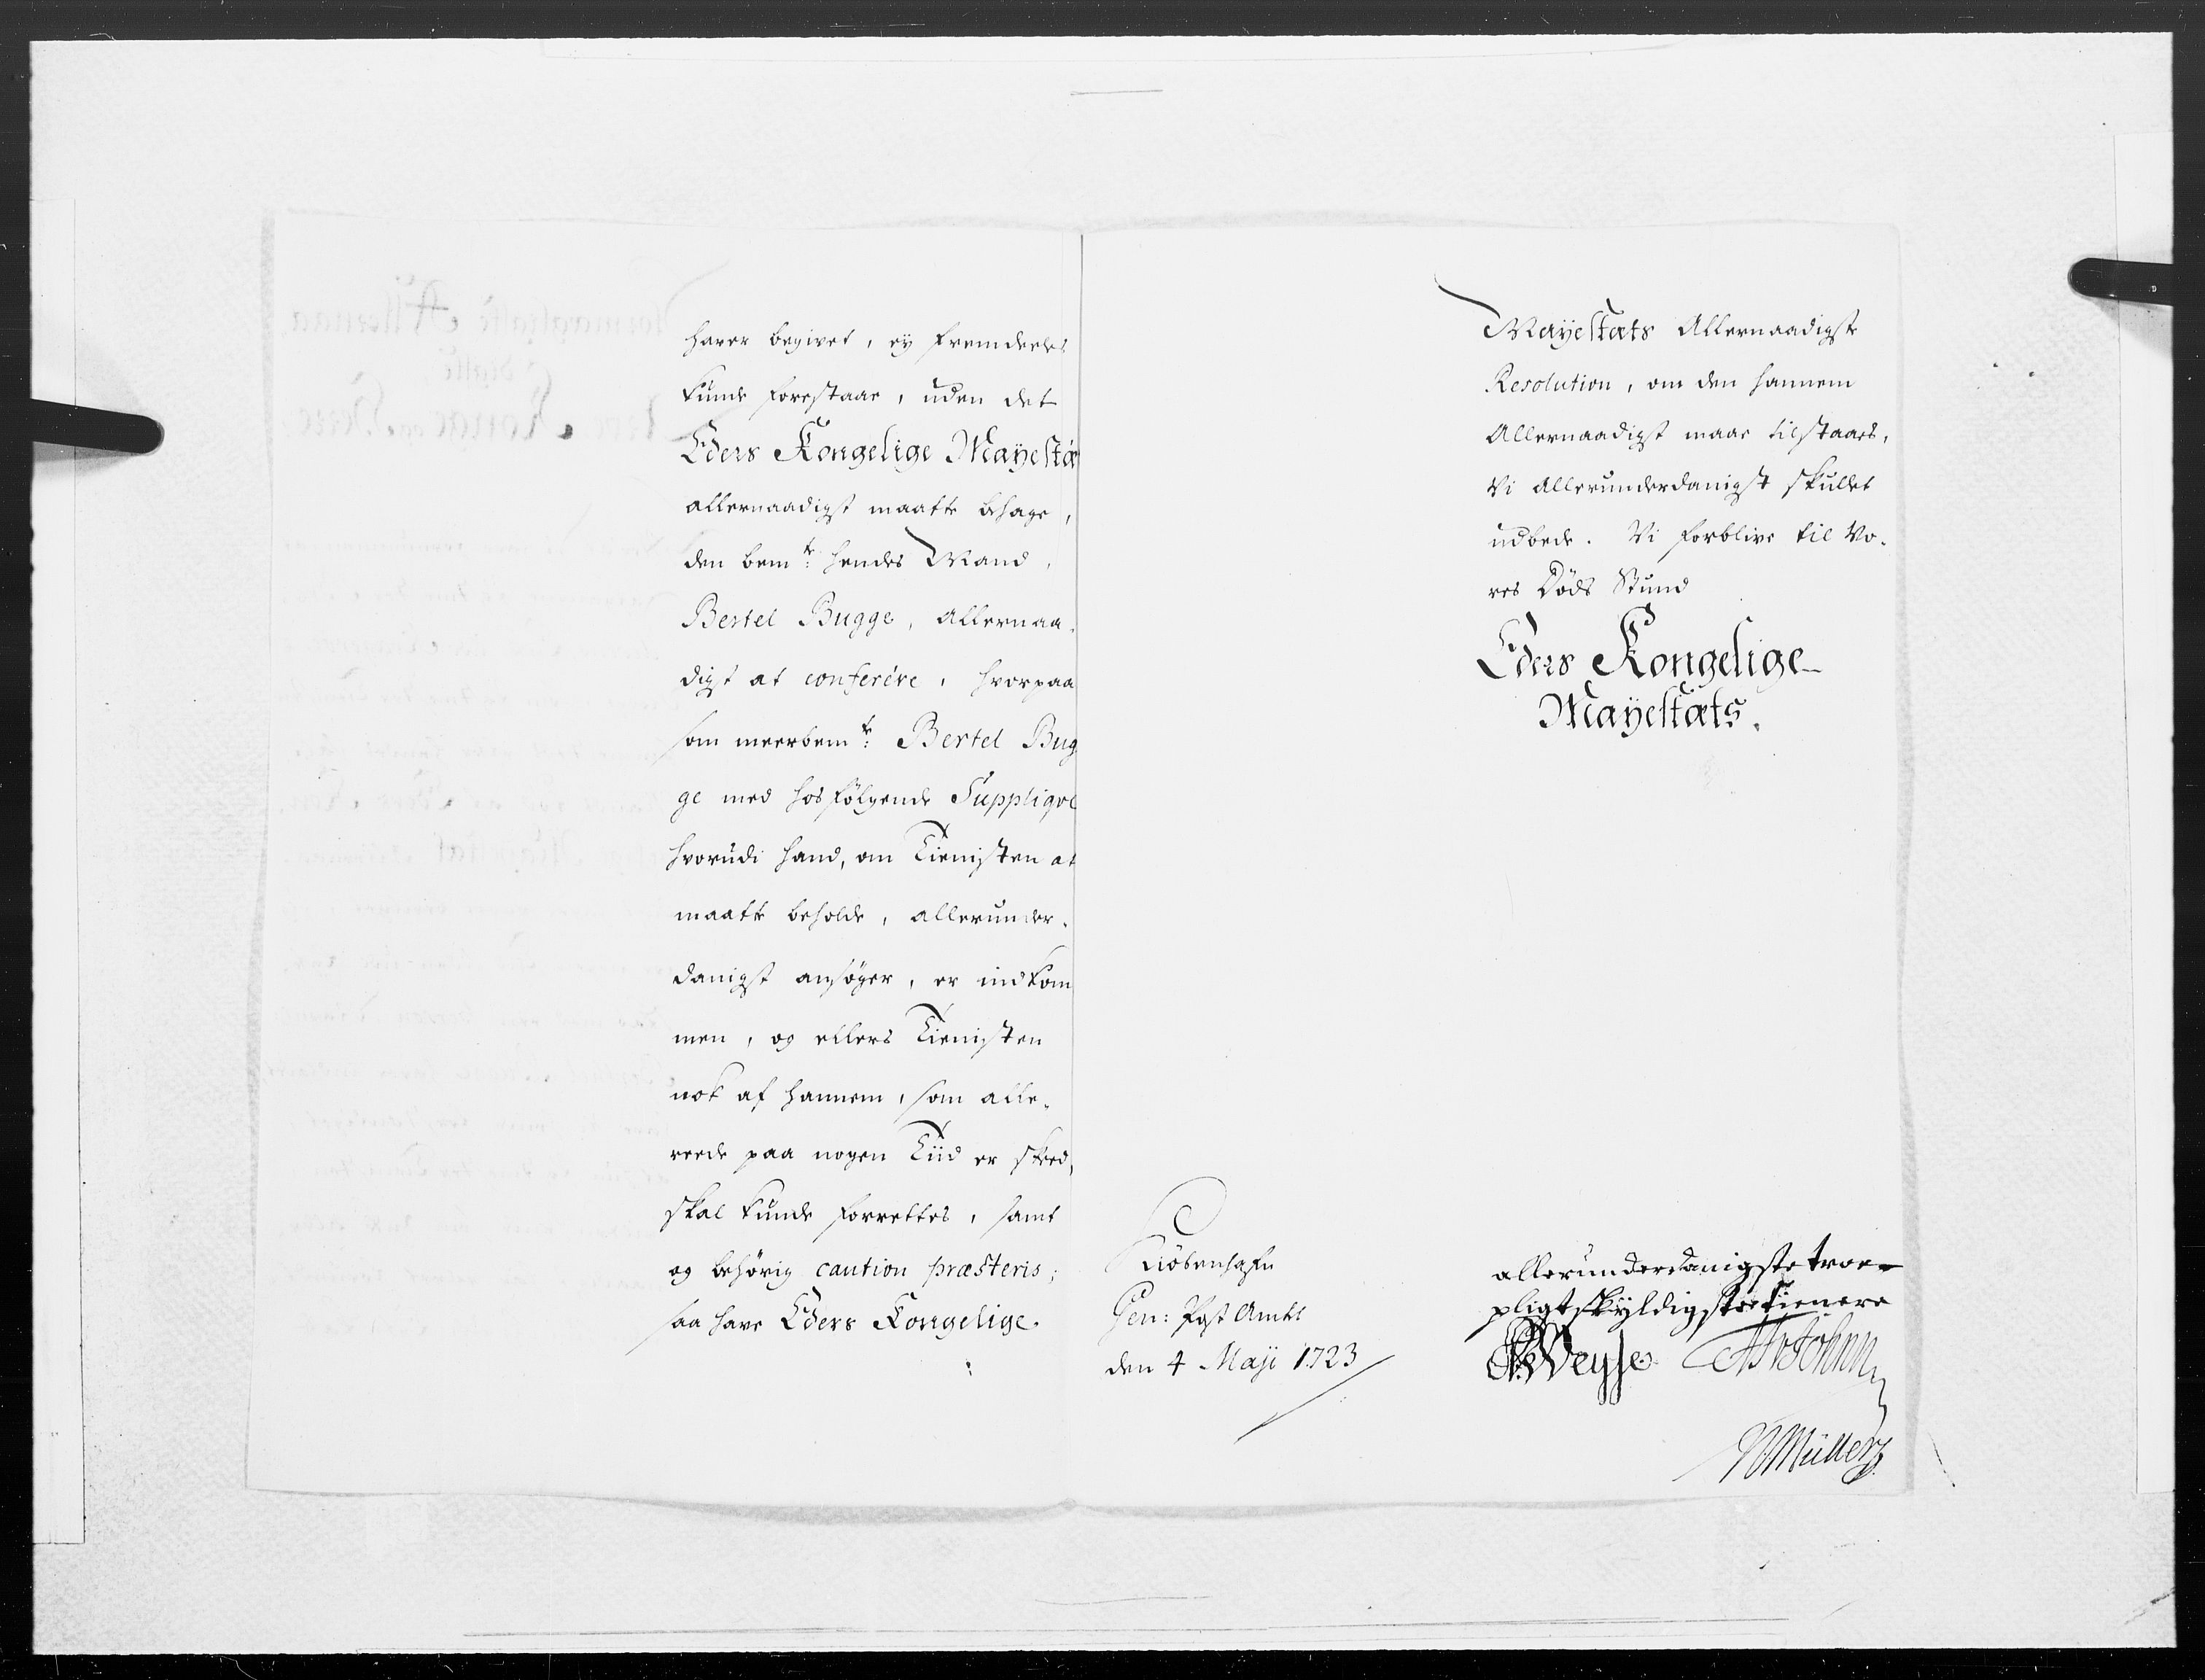 haver begivet, ey fremdeeles
kunde forestaae, uden det
Eders Kongelige Mayestæt
allernaadigst maatte behage,
den bemte: hendes Mand,
Bertel Bugge, Allernaa-
digst at conferére, hvorpaa
som meerbemte: Bertel Bug
ge med hosfølgende Suppliqve
hvorudi hand, om Tienisten at
maatte beholde, allerunder-
danigst ansøger, er indkom
men, og ellers Tienisten
nok af hannem, som alle-
reede paa nogen Tiid er skeed,
skal kunde forrettes, samt
og behørig caution præsteris;
saa have Eders Kongelige.
Mayestæts Allernaadigste
Resolution, om den hannem
Allernaadigst maae tilstaaes,
Vi Allerunderdanigst skulle
udbede. Vi forblive til Vo-
res Døds Stund
Eders Kongelige
Mayestæts.
Kiøbenhafn
Gen: Post Amtet
den 4 Maji 1723
allerunderdanigste troe-
pligtskyldigste tienere
Weyse
Müller